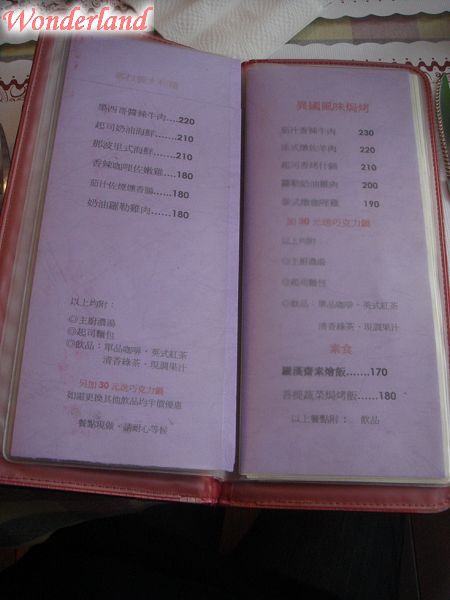 Wonderland
墨西哥醬辣牛肉....220
起司奶油海鮮.......210
那波里式海鮮.......210
香辣咖哩佐嫩雞....180
茄汁佐煙燻香腸.....180
奶油羅勒雞肉.......180
以上均附：
◎主廚濃湯
◎起司麵包
◎飲品：單品咖啡·英式紅茶
清香綠茶·現調果汁
另加30元送巧克力鍋
如需更換其他飲品均半價優惠
餐點現做·請耐心等候
異國風味焗烤
茄汁香辣牛肉 230
法式燉佐羊肉 220
起司香烤什錦 210
羅勒奶油雞肉 200
泰式燉咖哩雞 190
加30元送巧克力鍋
以上均附：
◎主廚濃湯
◎起司麵包
◎飲品：單品咖啡·英式紅茶
清香綠茶·現調果汁
素食
羅漢齋素燴飯......170
菩提蔬菜焗烤飯.....180
以上餐點附： 飲品